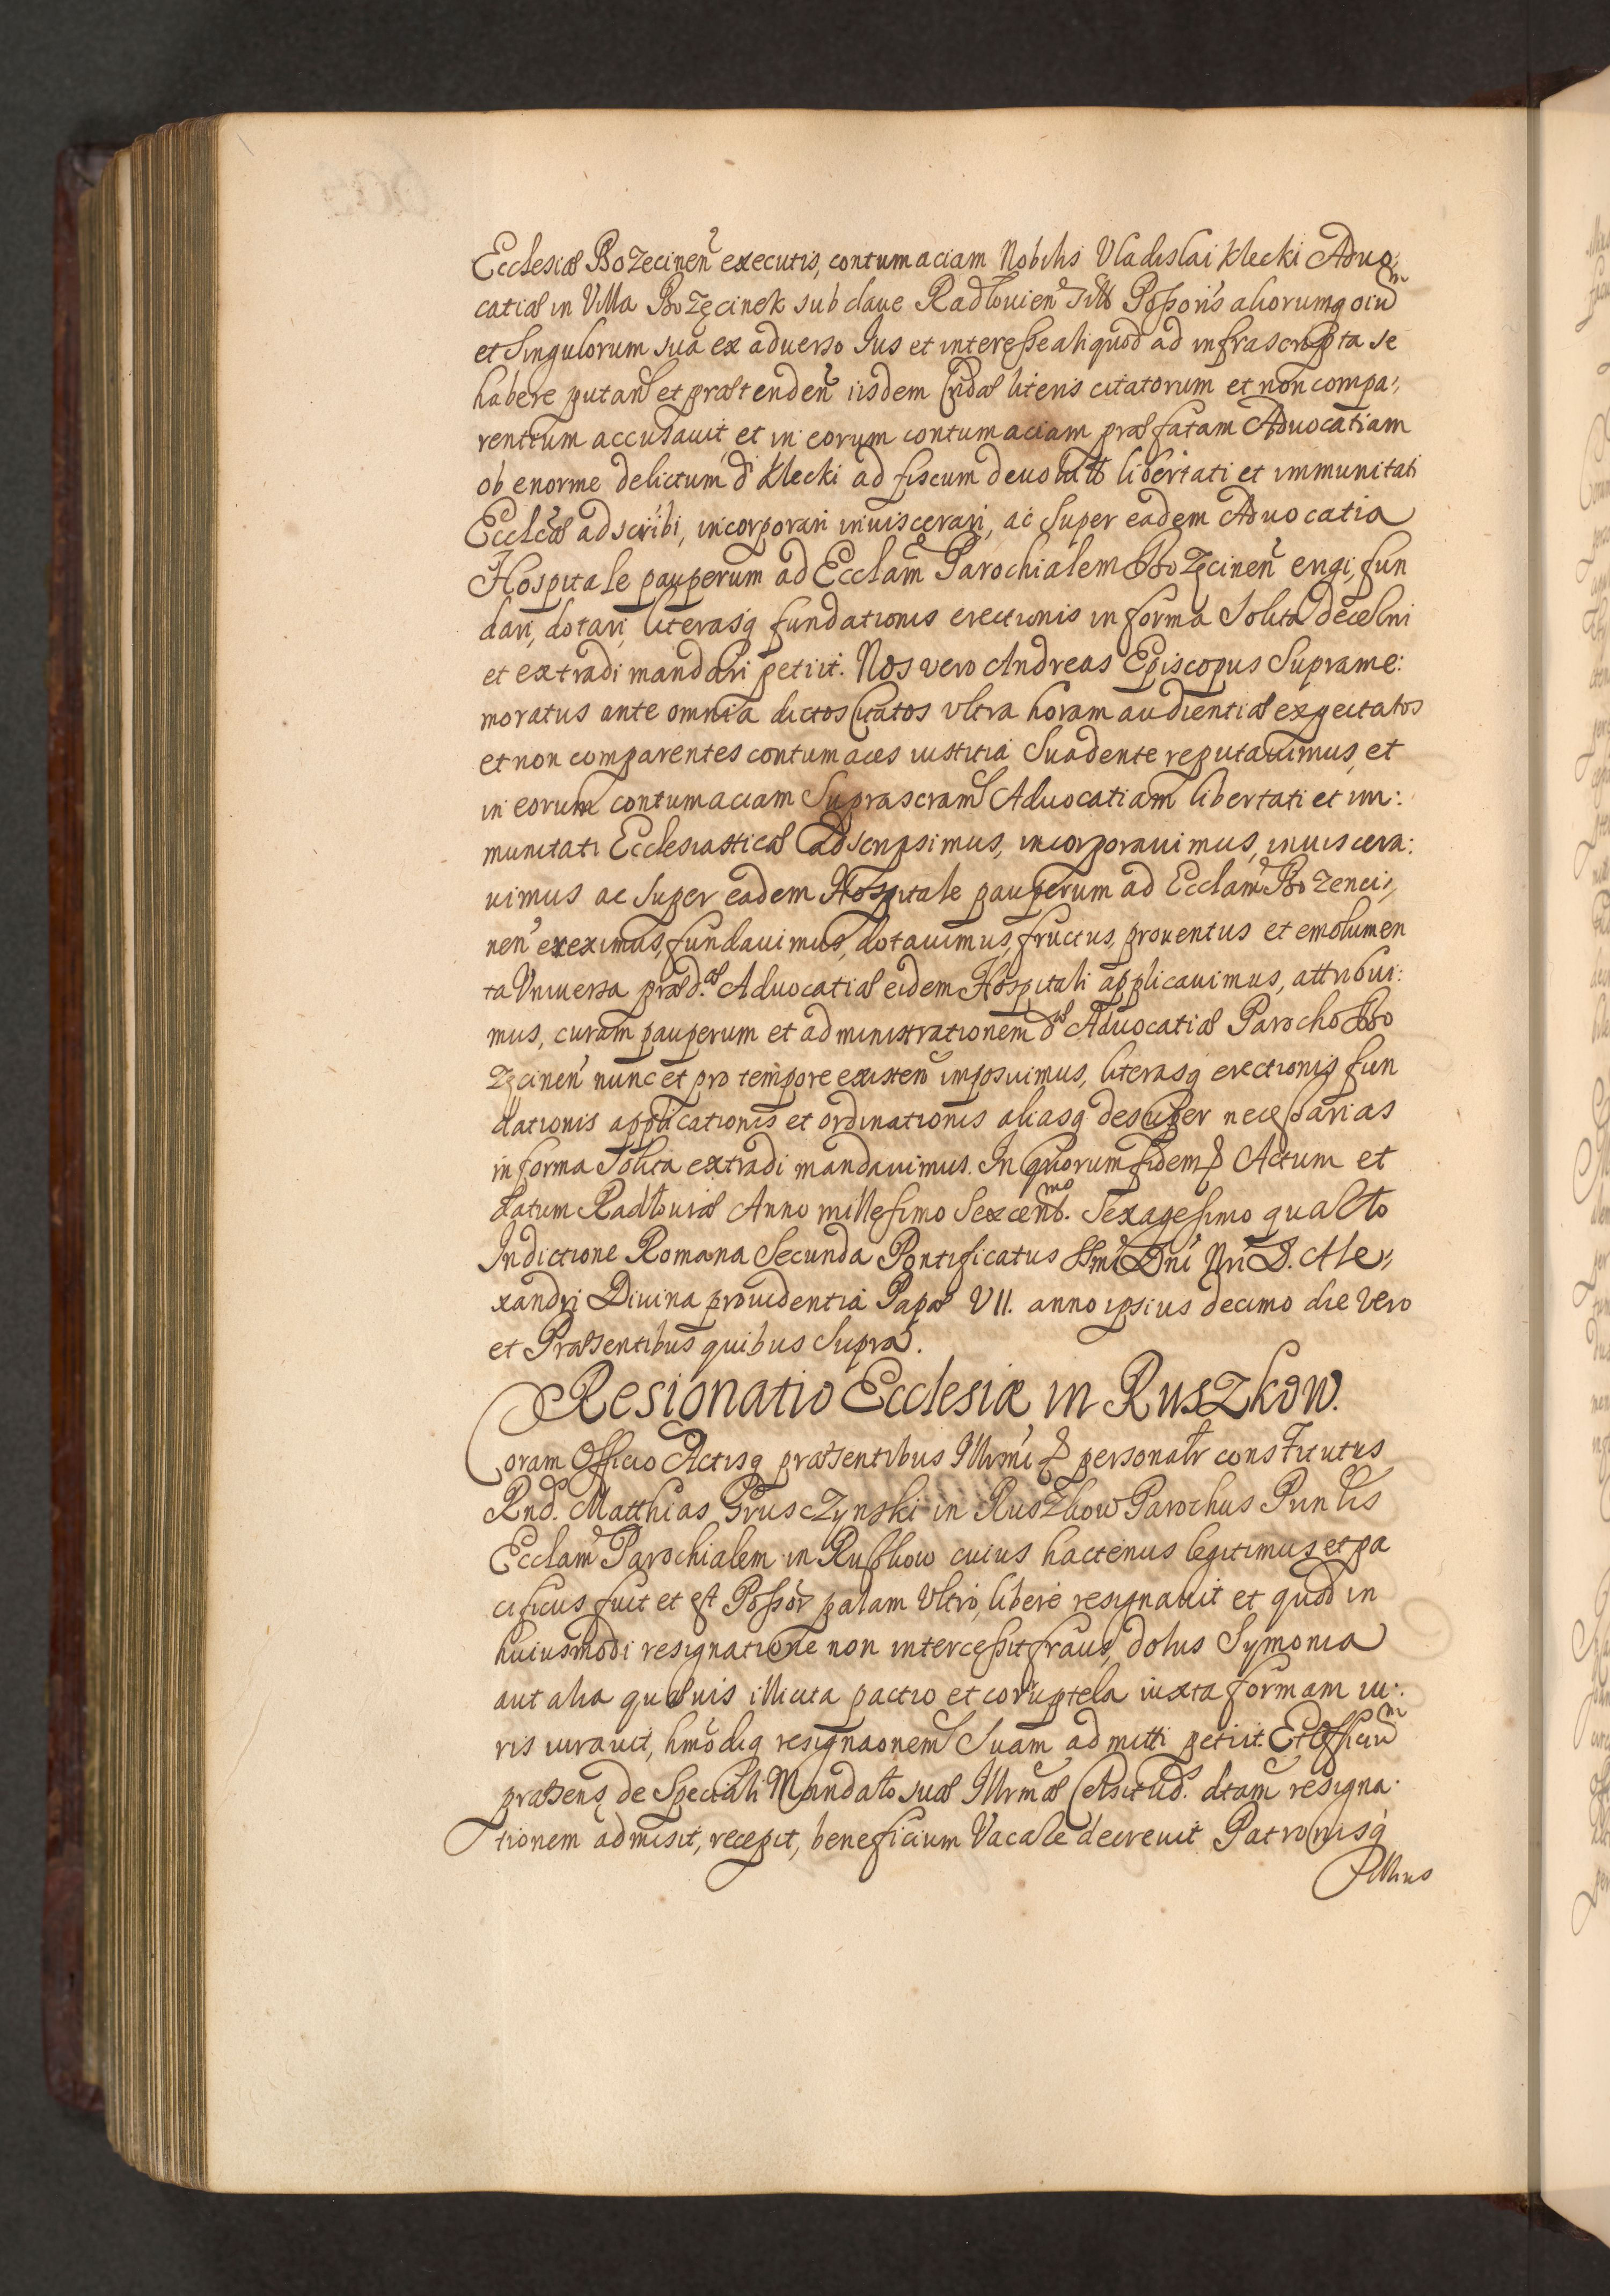 Ecclesiæ Bozecinen̄ executis, contumaciam Nobilis Vladislai Klecki Aduo:
catiæ in Villa Bozęcinek sub claue Radłouien̄ Possoris aliorumq oium
et Singulorum sua ex aduerso Ius et interesse aliquod ad infrascripta se
habere putan̄ et prætenden̄ iisdem literis citatorum et non compa:
rentium accusauit, et in eorum contumaciam præfatam Aduocatiam
ob enorme delictum d̄i Klecki ad fiscum deuolutā libertati et immunitati
Ecclēæ adscribi, incorporari inuiscerari, ac Super eadem Aduocatia
Hospitale pauperum ad Ecclam̄ Parochialem Bozęcinen̄ erigi, fun
dari, dotari, literasq fundationis erectionis in forma Solita decerni
et extradi mandari petiit. Nos vero Andreas Episcopus Suprame:
moratus ante omnia dictos Citatos vltra horam audientiæ expectatos
et non comparentes contumaces iustitia Suadente reputauimus, et
in eorum contumaciam Suprascram̄ Aduocatiam libertati et im:
munitati Ecclesiasticæ adscripsimus, incorporauimus, inuiscera:
uimus ac Super eadem Hospitale pauperum ad Ecclam̄ Bozenci:
nen̄ ereximus, fundauimus, dotauimus, fructus, prouentus et emolumen
ta Vniuersa præd.æ Aduocatiæ eidem Hospitali applicauimus, attribui:
mus, curam pauperum et administrationem d.æ Aduocatiæ Parocho Bo
zęcinen̄ nunc et pro tempore existen̄ imposuimus, literasq erectionis fun
dationis applicationis et ordinationis aliasq desuper necessarias
in forma Solita extradi mandauimus. In quorum fidem & Actum et
datum Radłouiæ Anno millesimo Sexcent.mo Sexagesimo quarto
Indictione Romana Secunda Pontificatus SSmi Dn̄i Nri D. Ale:
xandri Diuina prouidentia Papæ VII. anno ipsius decimo die vero
et Præsentibus quibus Supra.
Resignatio Ecclesiæ in Ruszkow.
Coram Officio Actisq præsentibus Illrmi & personalr constitutus
Rnd. Matthias Grusczynski in Ruszkow Parochus Prin̄lis
Ecclam̄ Parochialem in Russkow cuius hactenus legitimus et pa
cificus fuit et est Possor palam Vltro, libere resignauit et quod in
huiusmodi resignatione non intercessit fraus, dolus Symonia
aut alia quæuis illicita pactio et coruptela iuxta formam iu:
ris iurauit, hmōdiq resignaonem̄ Suam admitti petiit. Et Officium
præsens de Speciali Mandato suæ Illrmæ Celsitud. dtam̄ resigna:
tionem admisit, recepit, beneficium Vacare decreuit Patronisq
Illius